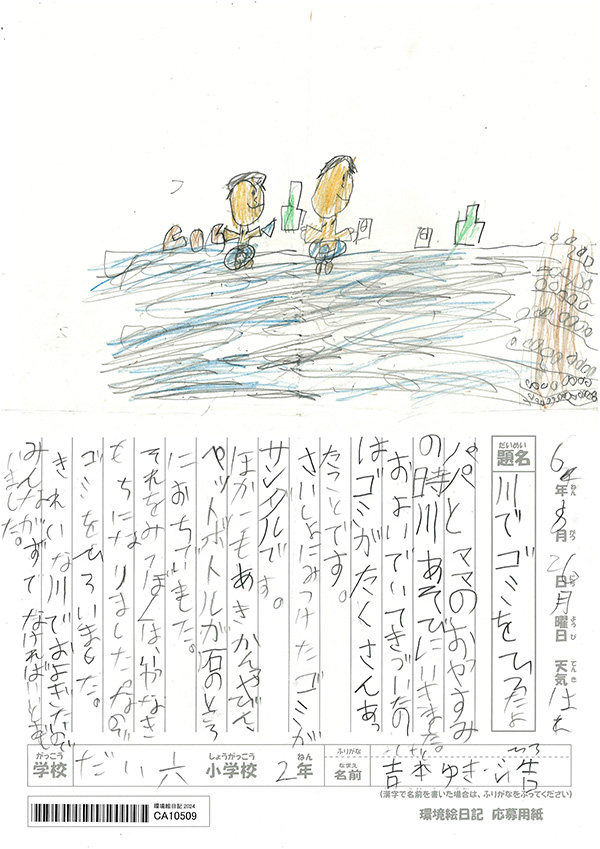 6年8月26日月曜日 天気 はれ
だいめい
題名
川でゴミをひろたよ
パパとママのおやすみ
の時川あそびにいきました。
およいでいてきづいたの
はゴミがたくさんあっ
たことです。
さいしょにみつけたゴミが
サンダルです。
ほかにもあきかんやびん
ペットボトルが石のところ
におちていました。
それをみてぼくはいやなき
もちになりました。なので
ゴミをひろいました。
きれいな川でおよぎたいので
みんながすてなければいとおも
いました。
がっこう
学校
だい六
しょうがっこう
小学校
2
ねん
年
ふりがな
なまえ
名前
吉本ゆき
(漢字で名前を書いた場合は、ふりがなをふってください)
環境絵日記2024
CA10509
環境絵日記 応募用紙